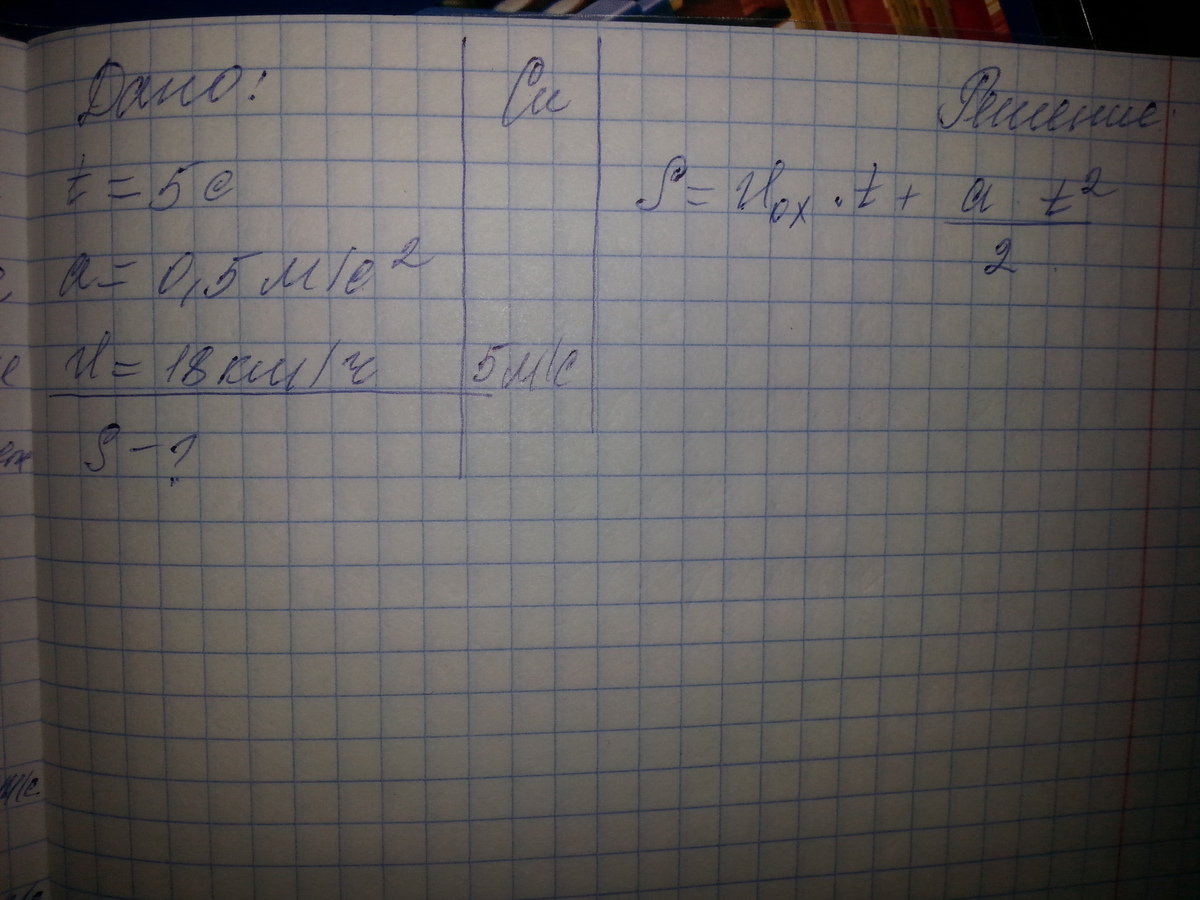 Дано:
t = 5 с
a = 0,5 м/с²
υ = 18 км/ч
S - ?
Си
5 м/с
Решение:
S = υ₀ₓ · t + a · t² / 2
м/с